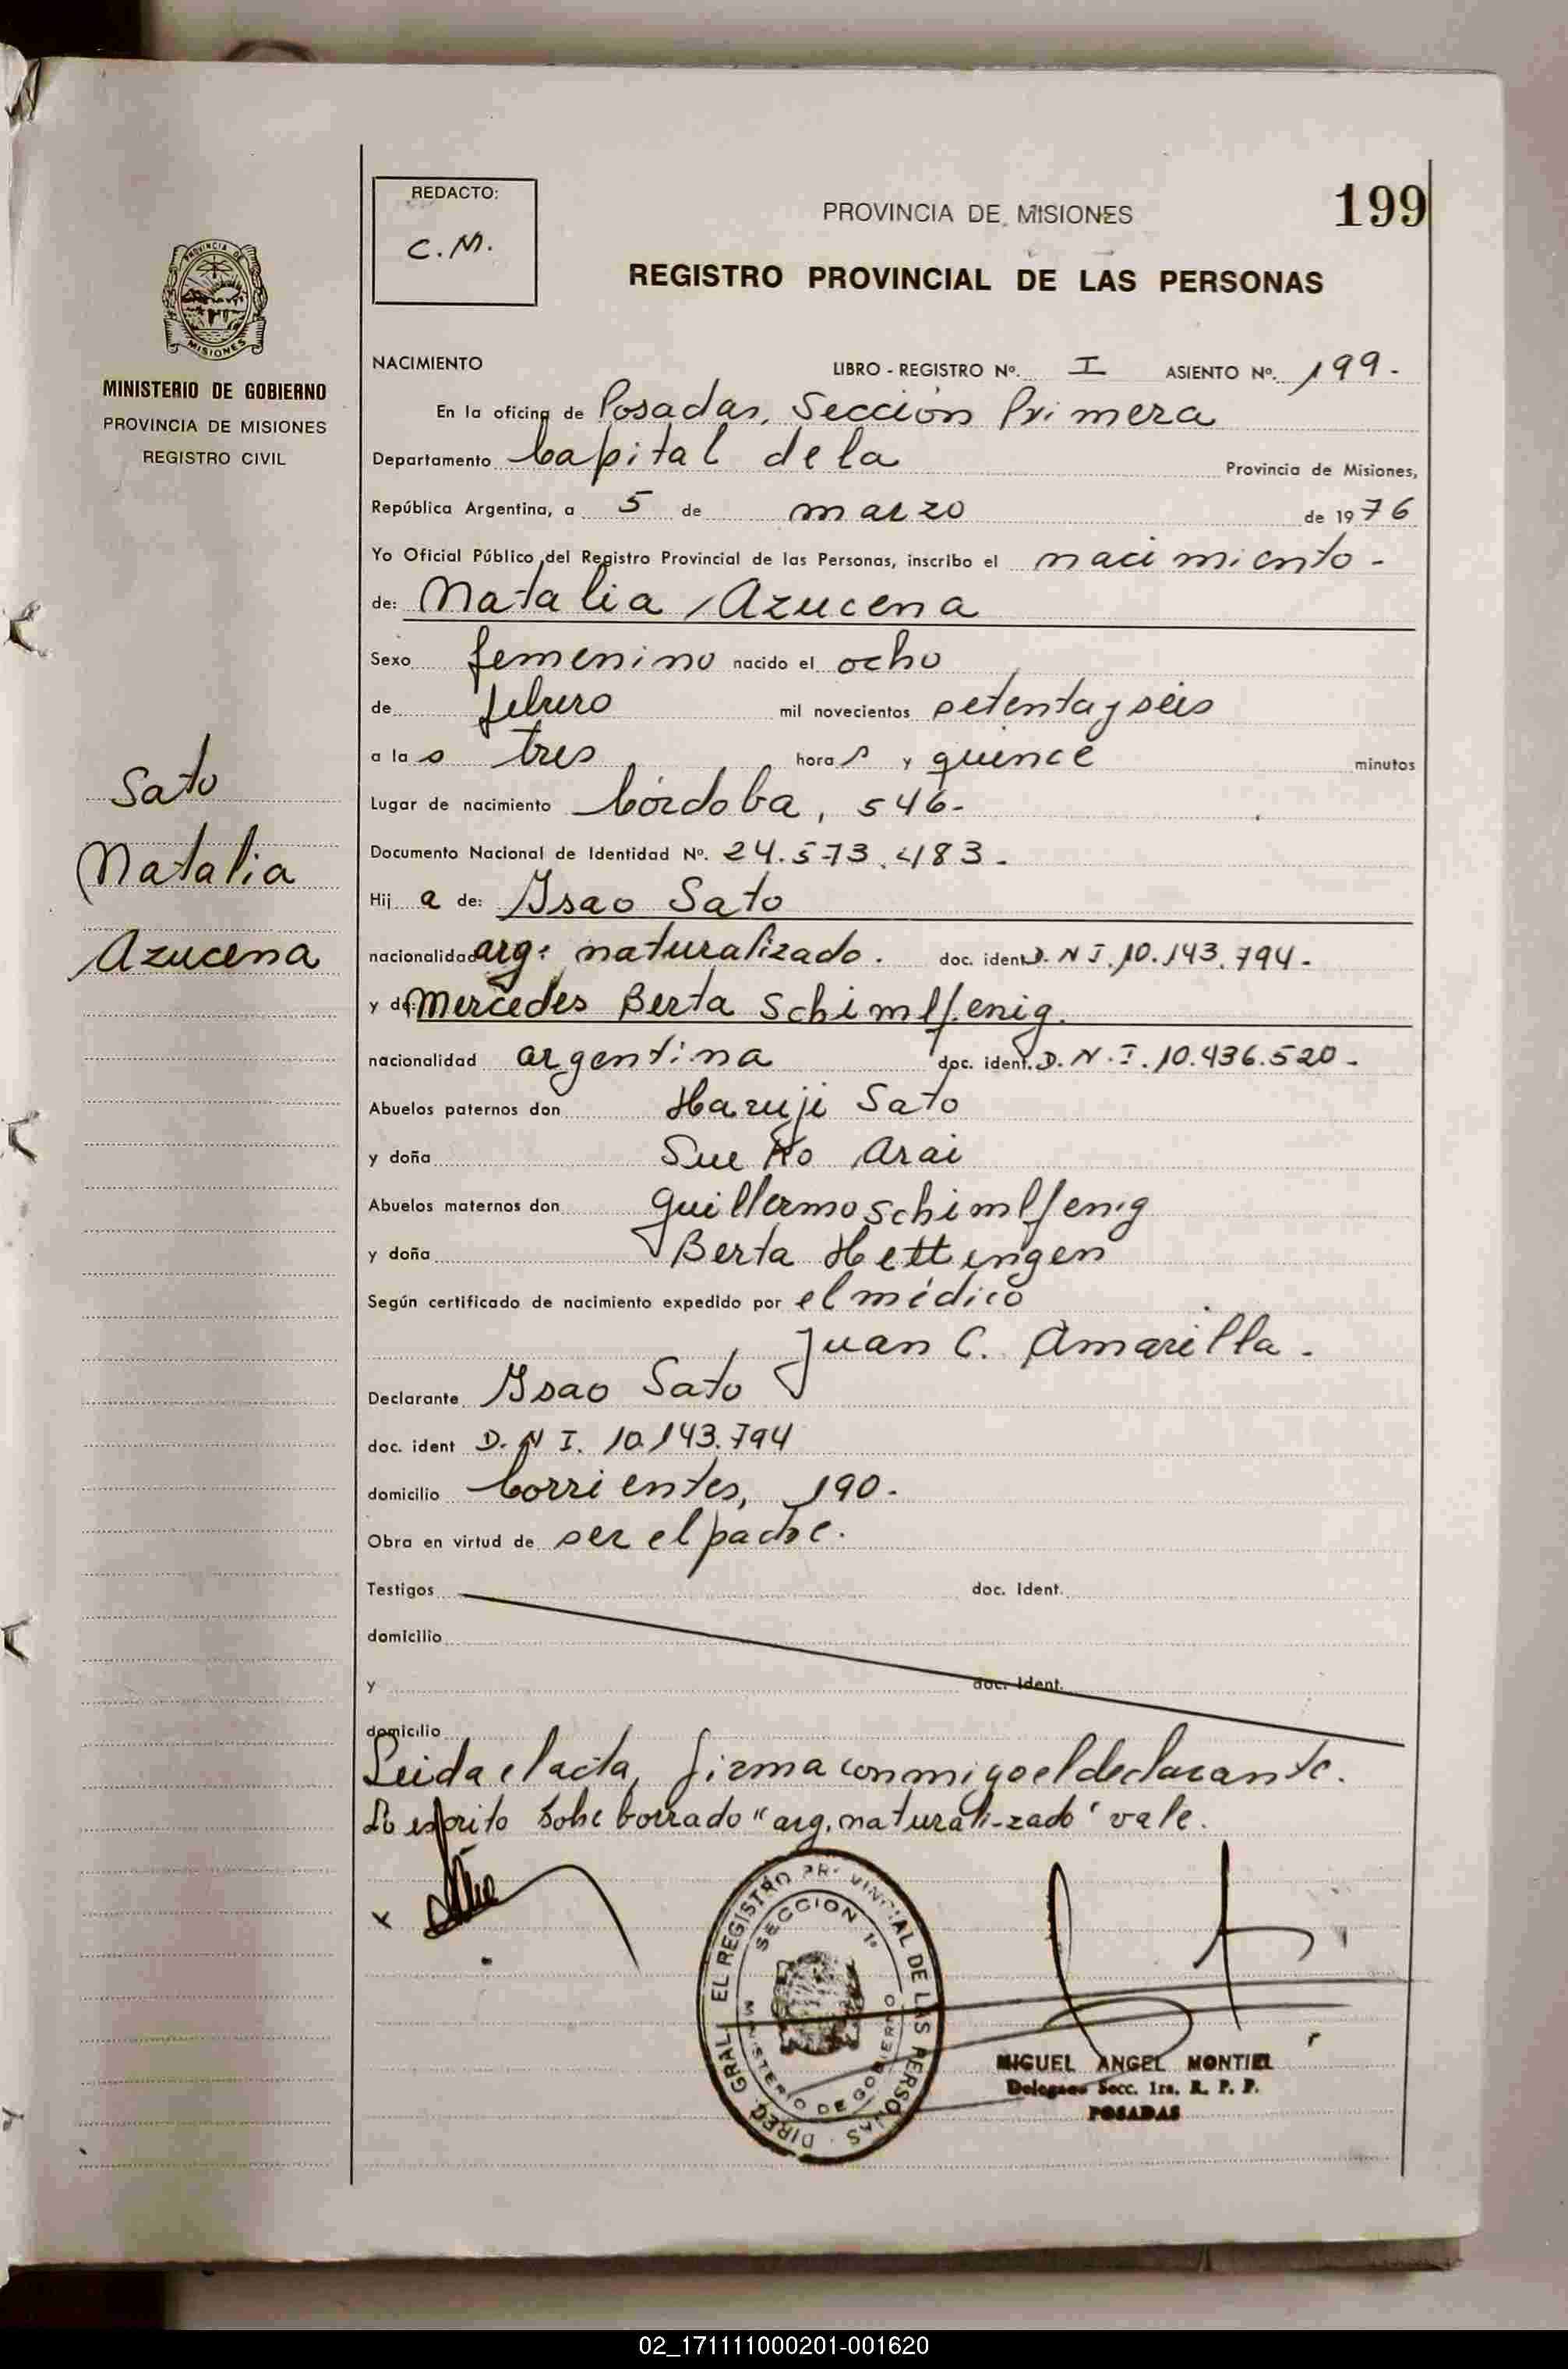 199
REDACTO:
C.M.
PROVINCIA DE MISIONES
REGISTRO PROVINCIAL DE LAS PERSONAS
PROVINCIA DE
MISIONES
MINISTERIO DE GOBIERNO
PROVINCIA DE MISIONES
REGISTRO CIVIL
Sato
Natalia
Azucena
NACIMIENTO LIBRO - REGISTRO Nº. I ASIENTO Nº. 199-
En la oficina de Posadas, Sección Primera
Departamento Capital de la Provincia de Misiones,
República Argentina, a 5 de marzo de 1976
Yo Oficial Público del Registro Provincial de las Personas, inscribo el nacimiento-
de: Natalia Azucena
Sexo femenino nacido el ocho
de febrero mil novecientos setenta y seis
a la s tres hora s y quince minutos
Lugar de nacimiento Córdoba, 546-
Documento Nacional de Identidad Nº. 24.573.483-
Hij a de: Isao Sato
nacionalidad arg. naturalizado. doc. ident. D.N I. 10.143.794-
y de: Mercedes Berta Schimlfenig.
nacionalidad argentina doc. ident. D.N.I. 10.436.520-
Abuelos paternos don Haruji Sato
y doña Sue Ko Arai
Abuelos maternos don Guillermo Schimlfenig
y doña Berta Hettingen
Según certificado de nacimiento expedido por el médico
Juan C. Amarilla.
Declarante Isao Sato
doc. ident D.N I. 10.143.794
domicilio Corrientes, 190-
Obra en virtud de ser el padre.
Testigos doc. Ident.
domicilio
y doc. Ident.
domicilio
Leida el acta, firma conmigo el declarante.
Lo escrito sobre borrado "arg. naturali-zado" vale.
x
DIREC. GRAL. DEL REGISTRO PROVINCIAL DE LAS PERSONAS
SECCION 1ª
MINISTERIO DE GOBIERNO
MIGUEL ANGEL MONTIEL
Delegado Secc. 1ra. R. P. P.
POSADAS
02_171111000201-001620